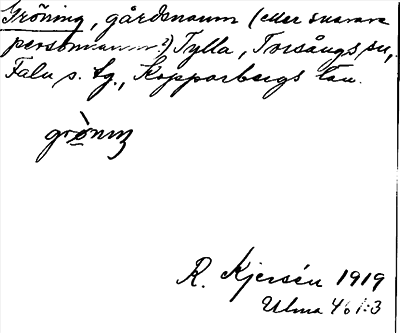 Gröning, gårdsnamn (eller snarare
personnamn?) Tylla, Torsångs sn,
Falu s. tg., Kopparbergs län.
grö̀nıŋ
R. Kjersén 1919
Ulma 46 1:3